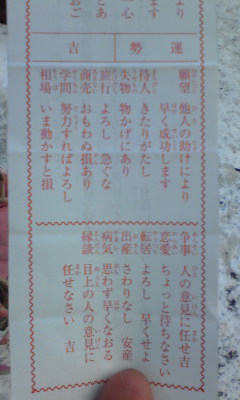 より
ます
心
とあ
おご
運勢 吉
願望 他人の助けにより
早く成功します
待人 きたりがたし
失物 物かげにあり
旅行 よろし 急ぐな
商売 おもわぬ損あり
学問 努力すればよろし
相場 いま動かすと損
争事 人の意見に任せ吉
恋愛 ちょっと待ちなさい
転居 よろし 早くせよ
出産 さわりなし 安産
病気 思わず早くなおる
縁談 目上の人の意見に
任せなさい 吉